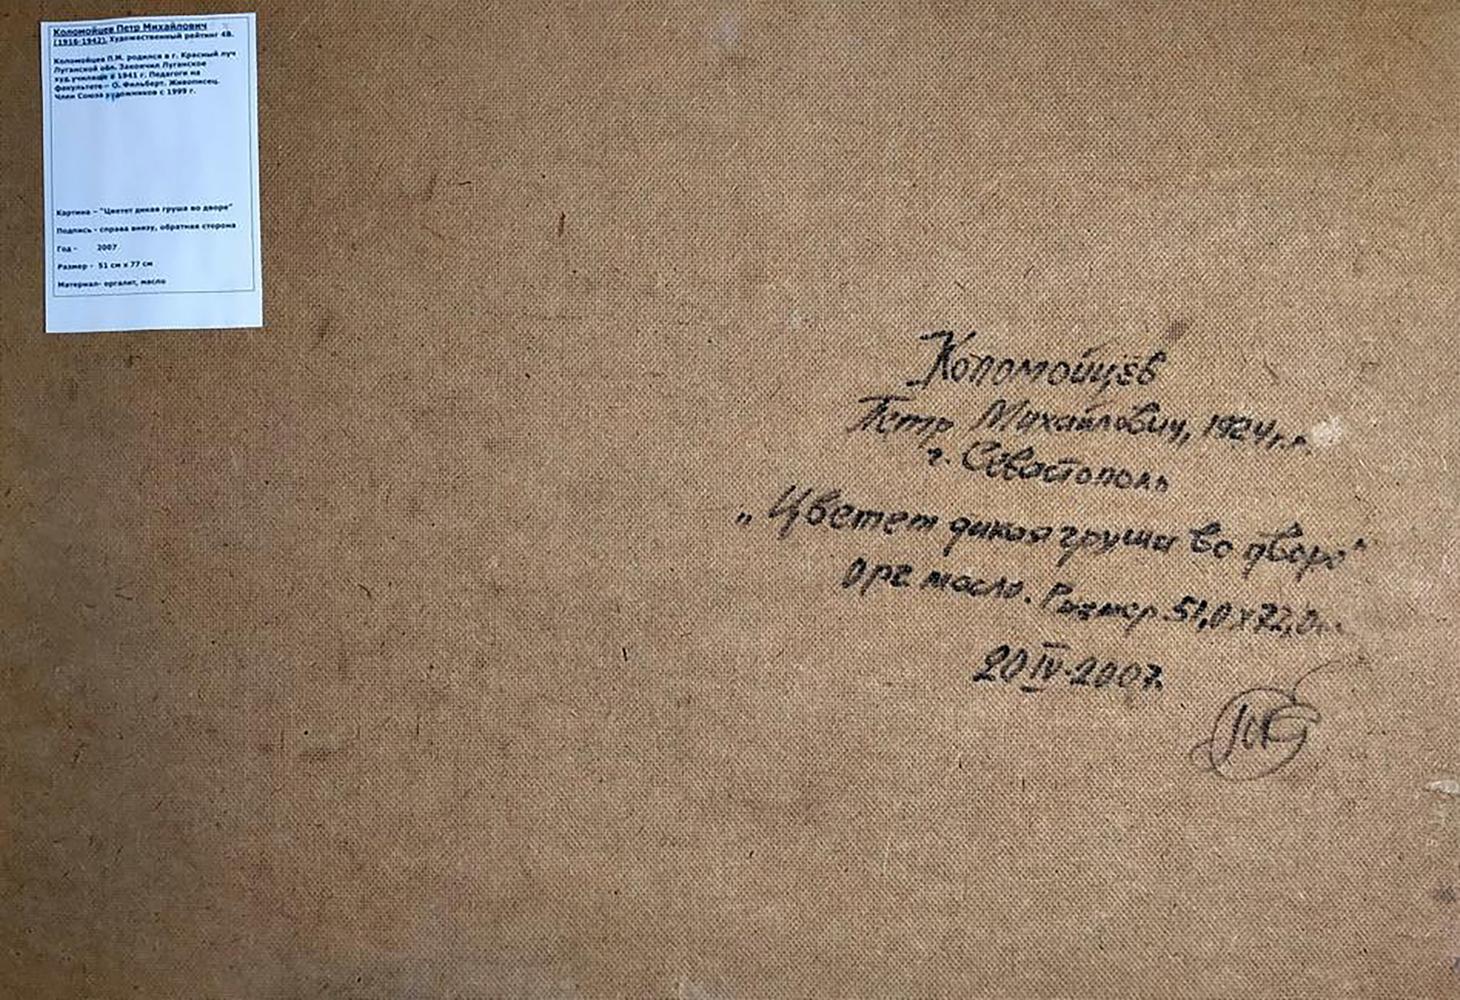 Коломойцев Петр Михайлович
(1916-1942). Художественный рейтинг 4В.
Коломойцев П.М. родился в г. Красный луч
Луганской обл. Закончил Луганское
худ.училище в 1941 г. Педагоги на
факультете – О. Фильберт. Живописец.
Член Союза художников с 1999 г.
Картина – "Цветет дикая груша во дворе"
Подпись - справа внизу, обратная сторона
Год - 2007
Размер - 51 см х 77 см
Материал- оргалит, масло
Коломойцев
Петр Михайлович, 1924г.р.
г. Севастополь
„Цветет дикая груша во дворе"
Орг. масло. Размер 51,0х72,0
20 IV-2007.